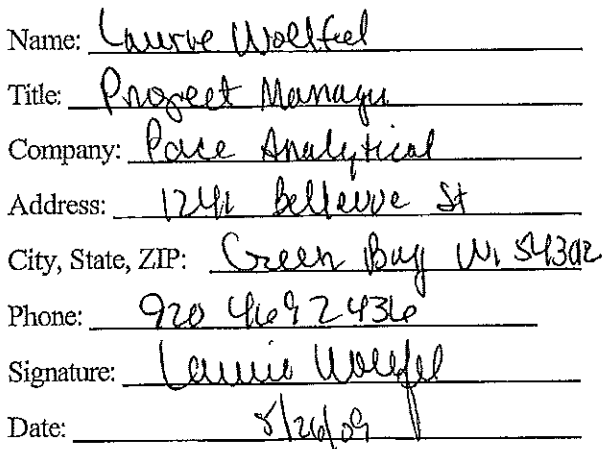 Name: Laurie Woelfel
Title: Project Manager
Company: Pace Analytical
Address: 1241 Bellevue St
City, State, ZIP: Green Bay WI 54302
Phone: 920 469 2436
Signature: Laurie Woelfel
Date: 8/26/09